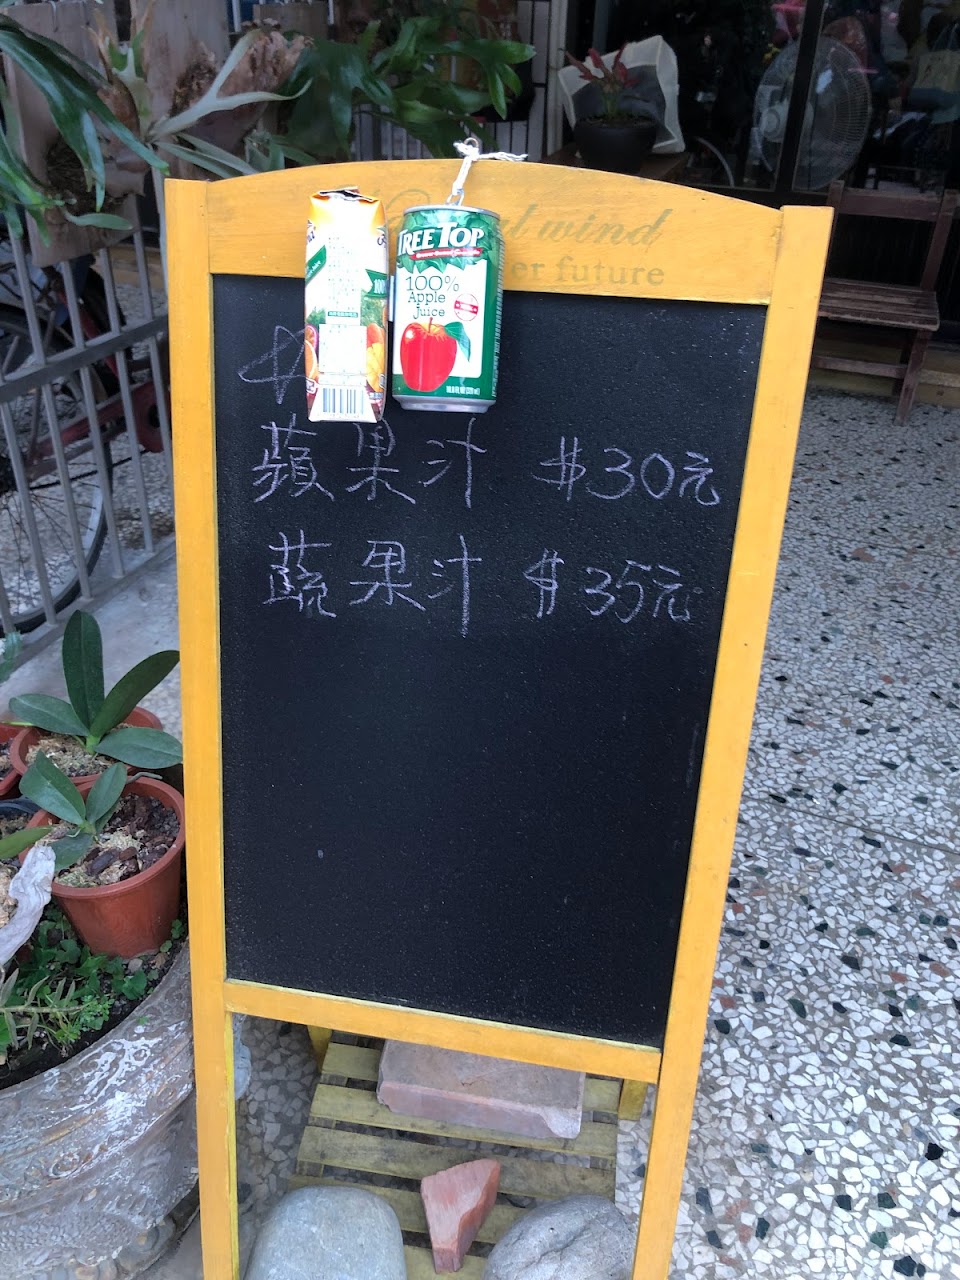 wind
er future
TREE TOP
100%
Apple
Juice
蘋果汁 $30元
蔬果汁 $35元